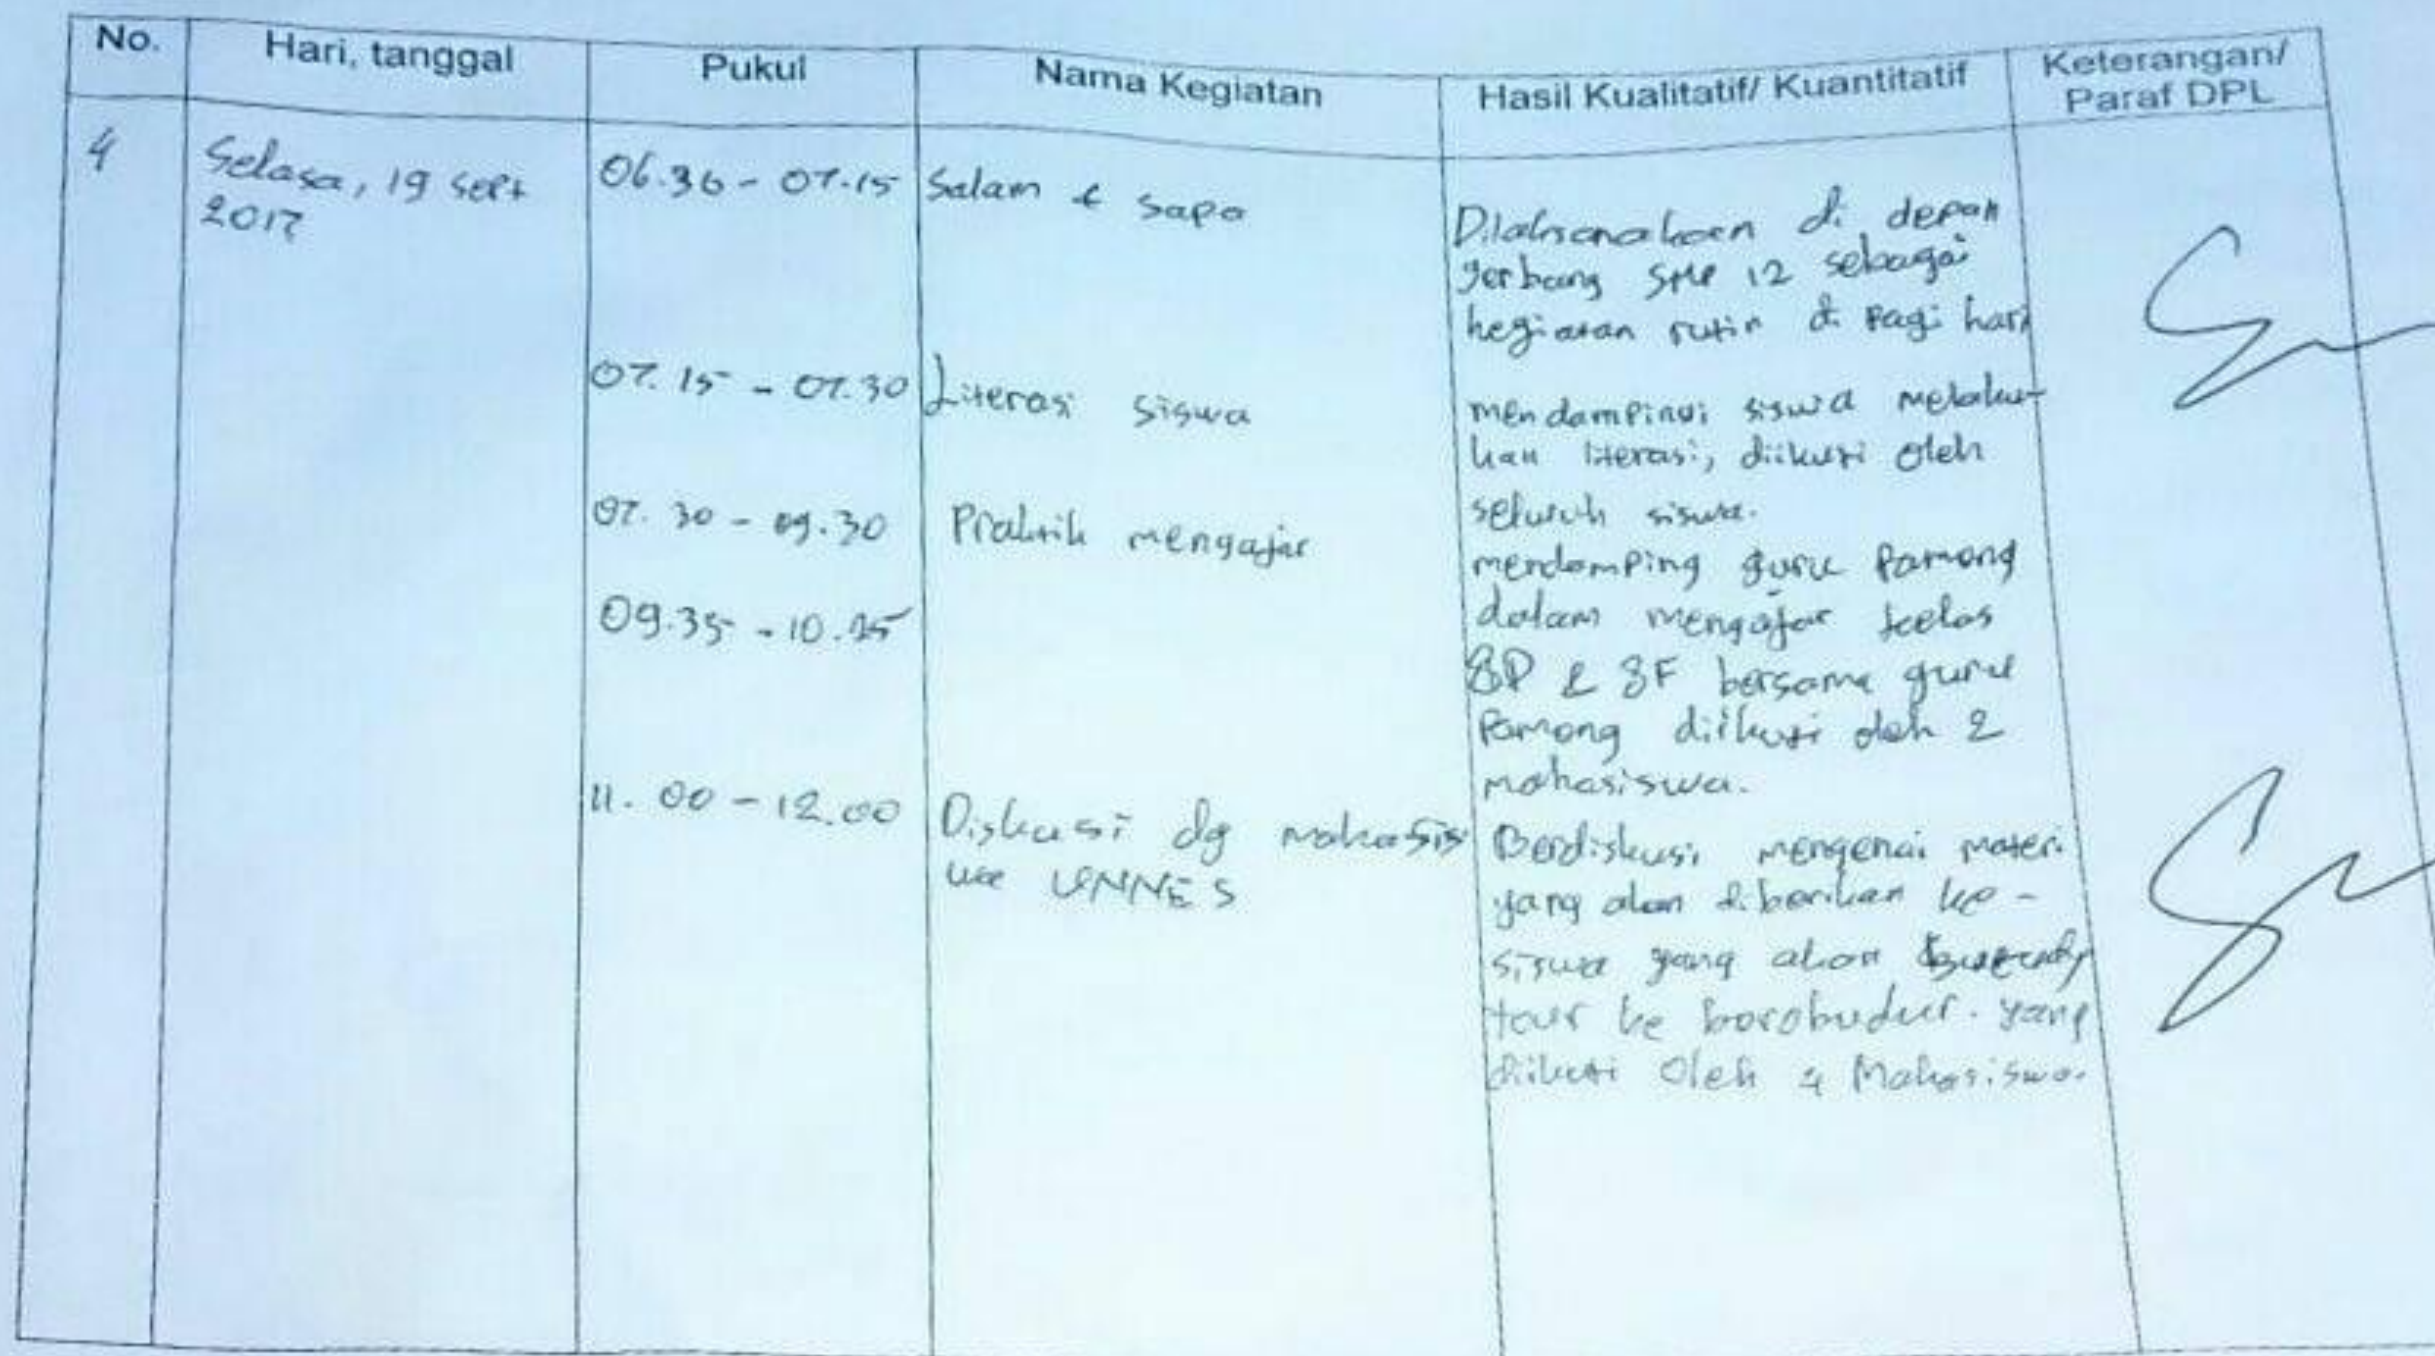 No.
Hari, tanggal
Pukul
Nama Kegiatan
Hasil Kualitatif/ Kuantitatif
Keterangan/
Paraf DPL
4
Selasa, 19 Sept
2017
06.30 - 07.15
Salam & sapa
Dilaksanakan di depan
gerbang SMP 12 sebagai
kegiatan rutin di pagi hari
07.15 - 07.30
Literasi siswa
mendampingi siswa melaku-
kan literasi, diikuti oleh
seluruh siswa.
07.30 - 09.30
Praktik mengajar
mendamping guru Pamong
dalam mengajar kelas
8D & 8F bersama guru
Pamong diikuti oleh 2
mahasiswa.
09.35 - 10.
11.00 - 12.00
Diskusi dg mahasis
wa UNNES
Berdiskusi mengenai materi
yang akan diberikan ke-
siswa yang akan
tour ke borobudur. yang
diikuti Oleh 4 Mahasiswa.